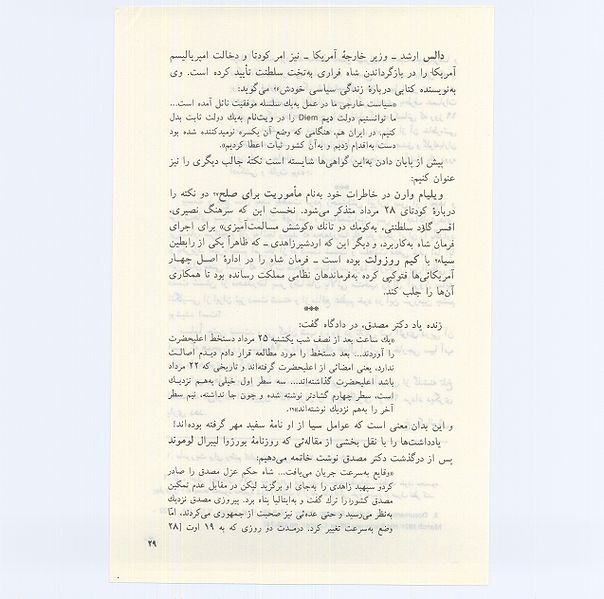 دالس ارشد ـ وزیر خارجهٔ آمریکا ـ نیز امر کودتا و دخالت امپریالیسم
آمریکا را در بازگرداندن شاه فراری به‌تخت سلطنت تأیید کرده است. وی
به‌نویسنده کتابی دربارهٔ زندگی سیاسی خودش۲۶ می‌گوید:
«سیاست خارجی ما در عمل به‌یك سلسله موفقیت نائل آمده است...
ما توانستیم دولت دیم Diem را در ویت‌نام به‌یك دولت ثابت بدل
کنیم. در ایران هم، هنگامی که وضع آن یکسره نومیدکننده شده بود
دست به‌اقدام زدیم و به‌آن کشور ثبات اعطا کردیم».
پیش از پایان دادن به‌این گواهی‌ها شایسته است نکتهٔ جالب دیگری را نیز
عنوان کنیم:
ویلیام وارن در خاطرات خود به‌نام مأموریت برای صلح۲۷ دو نکته را
دربارهٔ کودتای ۲۸ مرداد متذکر می‌شود. نخست این که سرهنگ نصیری،
افسر گارد سلطنتی، به‌کومك دو تانك «کوشش مسالمت‌آمیزی» برای اجرای
فرمان شاه به‌کاربرد، و دیگر این که اردشیرزاهدی ـ که ظاهراً یکی از رابطین
سیا» با کیم روزولت بوده است ـ فرمان شاه را در ادارهٔ اصل چهار
آمریکائی‌ها فتوکپی کرده به‌فرماندهان نظامی مملکت رسانده بود تا همکاری
آن‌ها را جلب کند.
***
زنده یاد دکتر مصدق، در دادگاه گفت:
«یك ساعت بعد از نصف شب یکشنبه ۲۵ مرداد دستخط اعلیحضرت
را آوردند... بعد دستخط را مورد مطالعه قرار دادم دیدم اصالت
ندارد، یعنی امضائی از اعلیحضرت گرفته‌اند و تاریخی که ۲۲ مرداد
باشد اعلیحضرت گذاشته‌اند... سه سطر اول خیلی به‌هم نزدیك
است، سطر چهارم گشادتر نوشته شده و چون جا نداشته، نیم سطر
آخر را به‌هم نزدیك نوشته‌اند»
و این بدان معنی است که عوامل سیا از او نامهٔ سفید مهر گرفته بوده‌اند!
یادداشت‌ها را با نقل بخشی از مقاله‌ئی که روزنامهٔ بورزوا لیبرال لوموند
پس از درگذشت دکتر مصدق نوشت خاتمه می‌دهیم:
«وقایع به‌سرعت جریان می‌یافت... شاه حکم عزل مصدق را صادر
کردو سپهبد زاهدی را به‌جای او برگزید لیکن در مقابل عدم تمکین
مصدق کشور را ترك گفت و به‌ایتالیا پناه برد. پیروزی مصدق نزدیك
به‌نظر می‌رسید و حتی عده‌ئی نیز صحبت از جمهوری می‌کردند، امّا
وضع به‌سرعت تغییر کرد. درمدت دو روزی که به ۱۹ اوت [۲۸
۲۹